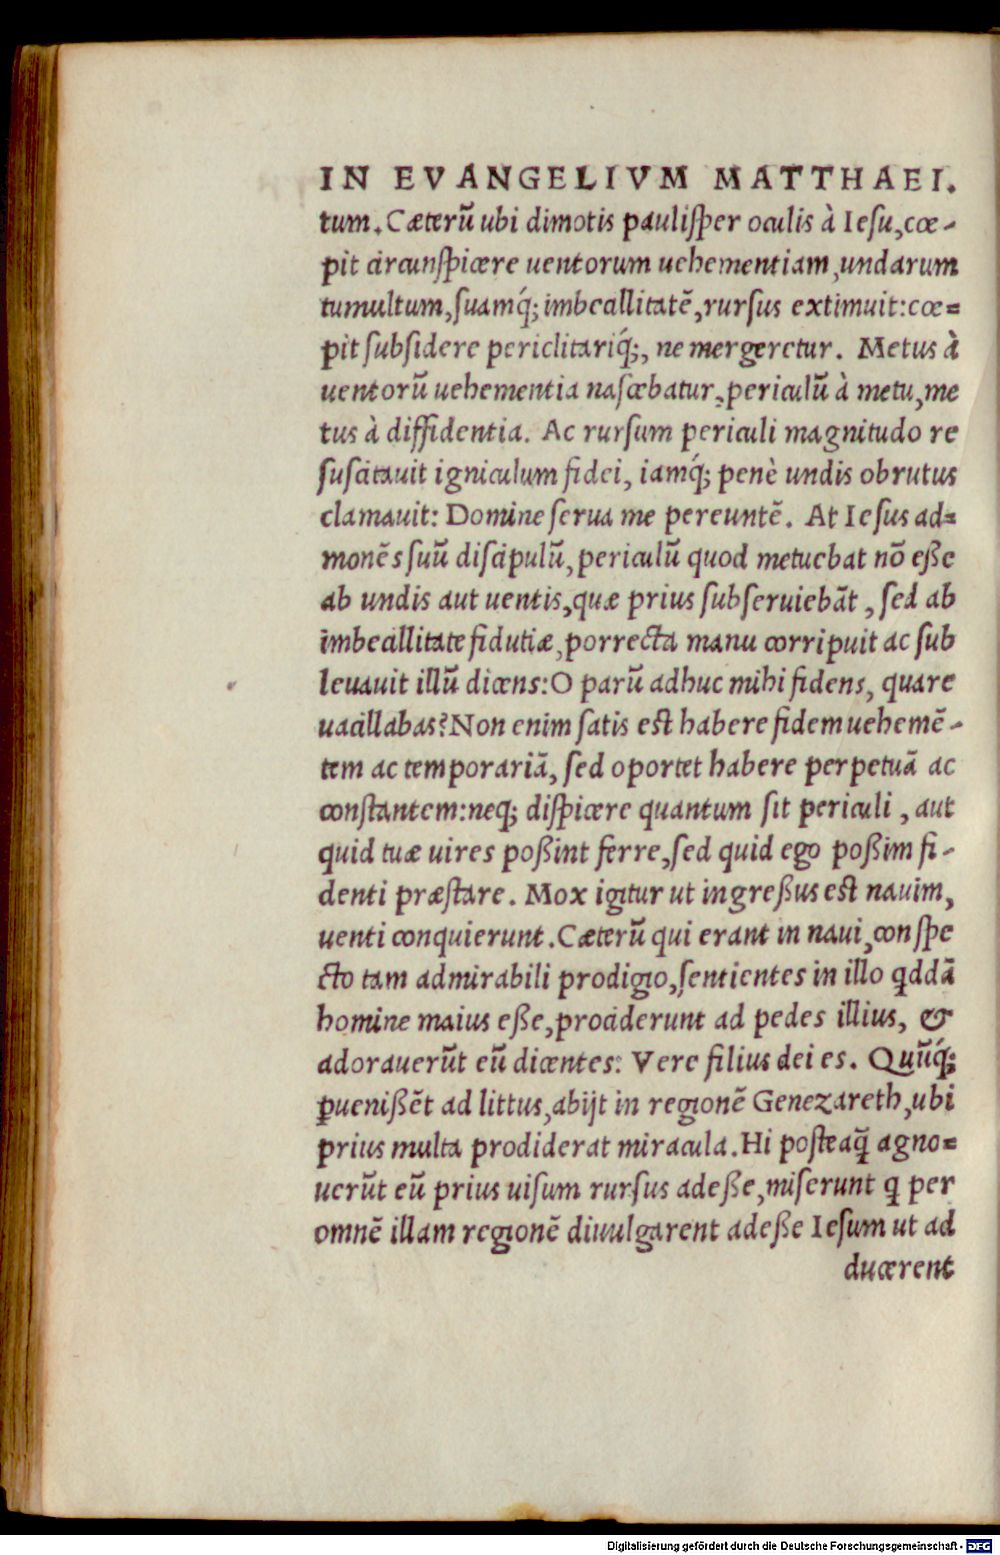 IN EVANGELIVM MATTHAEI.
tum. Cæterũ ubi dimotis paulisper oculis à Iesu, cœ-
pit circunspicere uentorum uehementiam, undarum
tumultum, suamq́; imbecillitatẽ, rursus extimuit: cœ=
pit subsidere periclitariq́;, ne mergeretur. Metus à
uentorũ uehementia nascebatur, periculũ à metu, me
tus à diffidentia. Ac rursum periculi magnitudo re
suscitauit igniculum fidei, iamq́; penè undis obrutus
clamauit: Domine serua me pereuntẽ. At Iesus ad=
monẽs suũ discipulũ, periculũ quod metuebat nõ eße
ab undis aut uentis, quæ prius subseruiebãt, sed ab
imbecillitate fidutiæ, porrecta manu corripuit ac sub
leuauit illũ dicens: O parũ adhuc mihi fidens, quare
uacillabas? Non enim satis est habere fidem uehemẽ-
tem ac temporariã, sed oportet habere perpetuã ac
constantem: neq; dispicere quantum sit periculi, aut
quid tuæ uires poßint ferre, sed quid ego poßim fi-
denti præstare. Mox igitur ut ingreßus est nauim,
uenti conquierunt. Cæterũ qui erant in naui, conspe
cto tam admirabili prodigio, sentientes in illo qddã
homine maius eße, prociderunt ad pedes illius, &
adorauerũt eũ dicentes: Vere filius dei es. Quũq́;
ꝑuenißẽt ad littus, abijt in regionẽ Genezareth, ubi
prius multa prodiderat miracula. Hi posteaq̃ agno=
uerũt eũ prius uisum rursus adeße, miserunt q per
omnẽ illam regionẽ diuulgarent adeße Iesum ut ad
ducerent
Digitalisierung gefördert durch die Deutsche Forschungsgemeinschaft - DFG